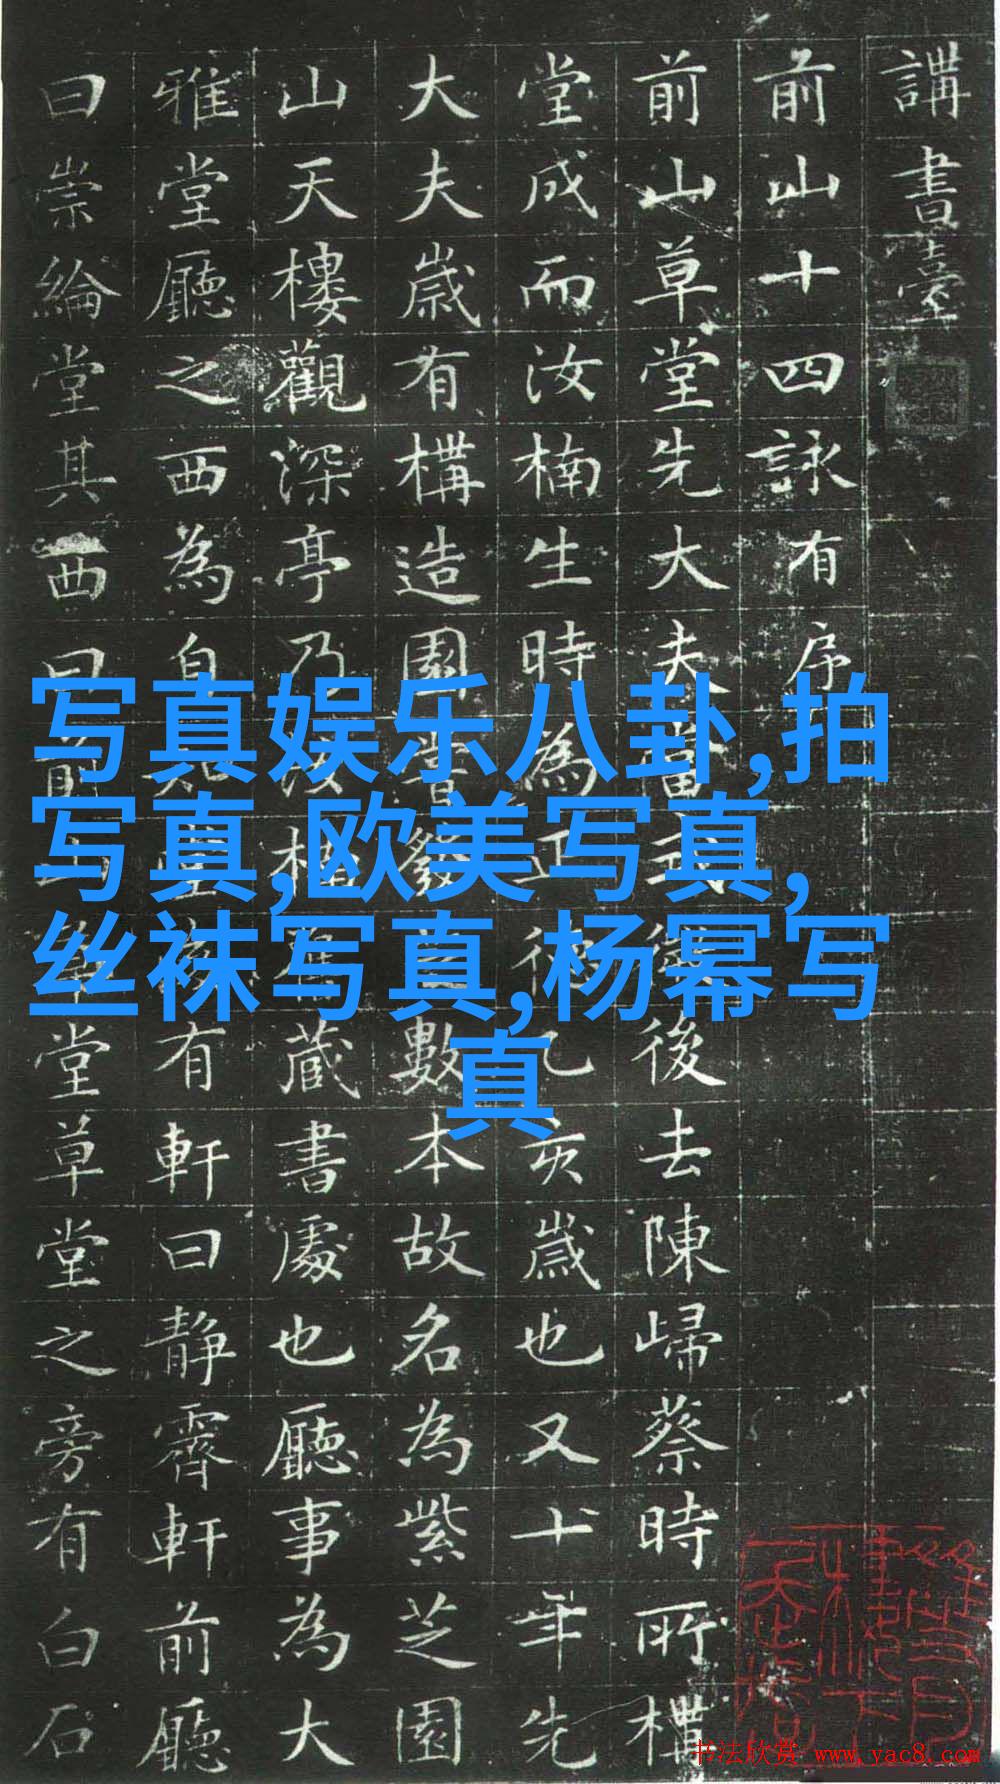 講書臺
前山十四詠有序
前山草堂先大夫當後去陳歸蔡時所
堂成而汝楠生時為正德乙亥歲也又十年先
大夫歲有構造園數本故名為紫芝園
山天樓觀深亭乃汝楠藏書處也廳事為大
雅堂廳之西為自堂有軒曰靜霽軒前廳
曰崇綸堂其西曰前山草堂草堂之旁有白石
写真娱乐八卦,拍
写真,欧美写真,
丝袜写真,杨幂写
真
书法欣赏 www.yac8.com